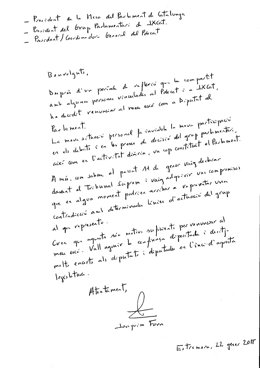 - President de la Mesa del Parlament de Catalunya
- President del Grup Parlamentari de JxCat.
- President/Coordinadora General del Pdecat
Benvolguts,
Després d'un període de reflexió que he compartit
amb algunes persones vinculades al Pdecat i a JXCat,
he decidit renunciar al meu escó com a Diputat al
Parlament.
La meva situació personal fa inviable la meva participació
en els debats i en la presa de decisió del grup parlamentari,
així com en l'activitat diària, un cop constituït el Parlament.
A més, com sabeu, el passat 11 de gener vaig declarar
davant el Tribunal Suprem i vaig adquirir uns compromisos
que en algun moment podrien arribar a representar una
contradicció amb determinades línies d'actuació del grup
al que represento.
Crec que aquests són motius suficients per renunciar al
meu escó. Vull agrair la confiança dipositada i desitjo
molt encerts als diputats i diputades en l'inici d'aquesta
legislatura.
Atentament,
Joaquim Forn
Estremera, 22 gener 2018